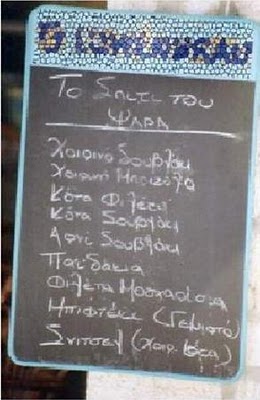 Το Σπιτι του
ΨΑΡΑ
Χοιρινό Σουβλάκι
Χοιρινή Μπριζόλα
Κότα Φιλέτο
Κότα Σουβλάκι
Αρνί Σουβλάκι
Παϊδάκια
Φιλέτα Μοσχαρίσια
Μπιφτέκι (Γεμιστό)
Σνίτσελ (Χοιρ.